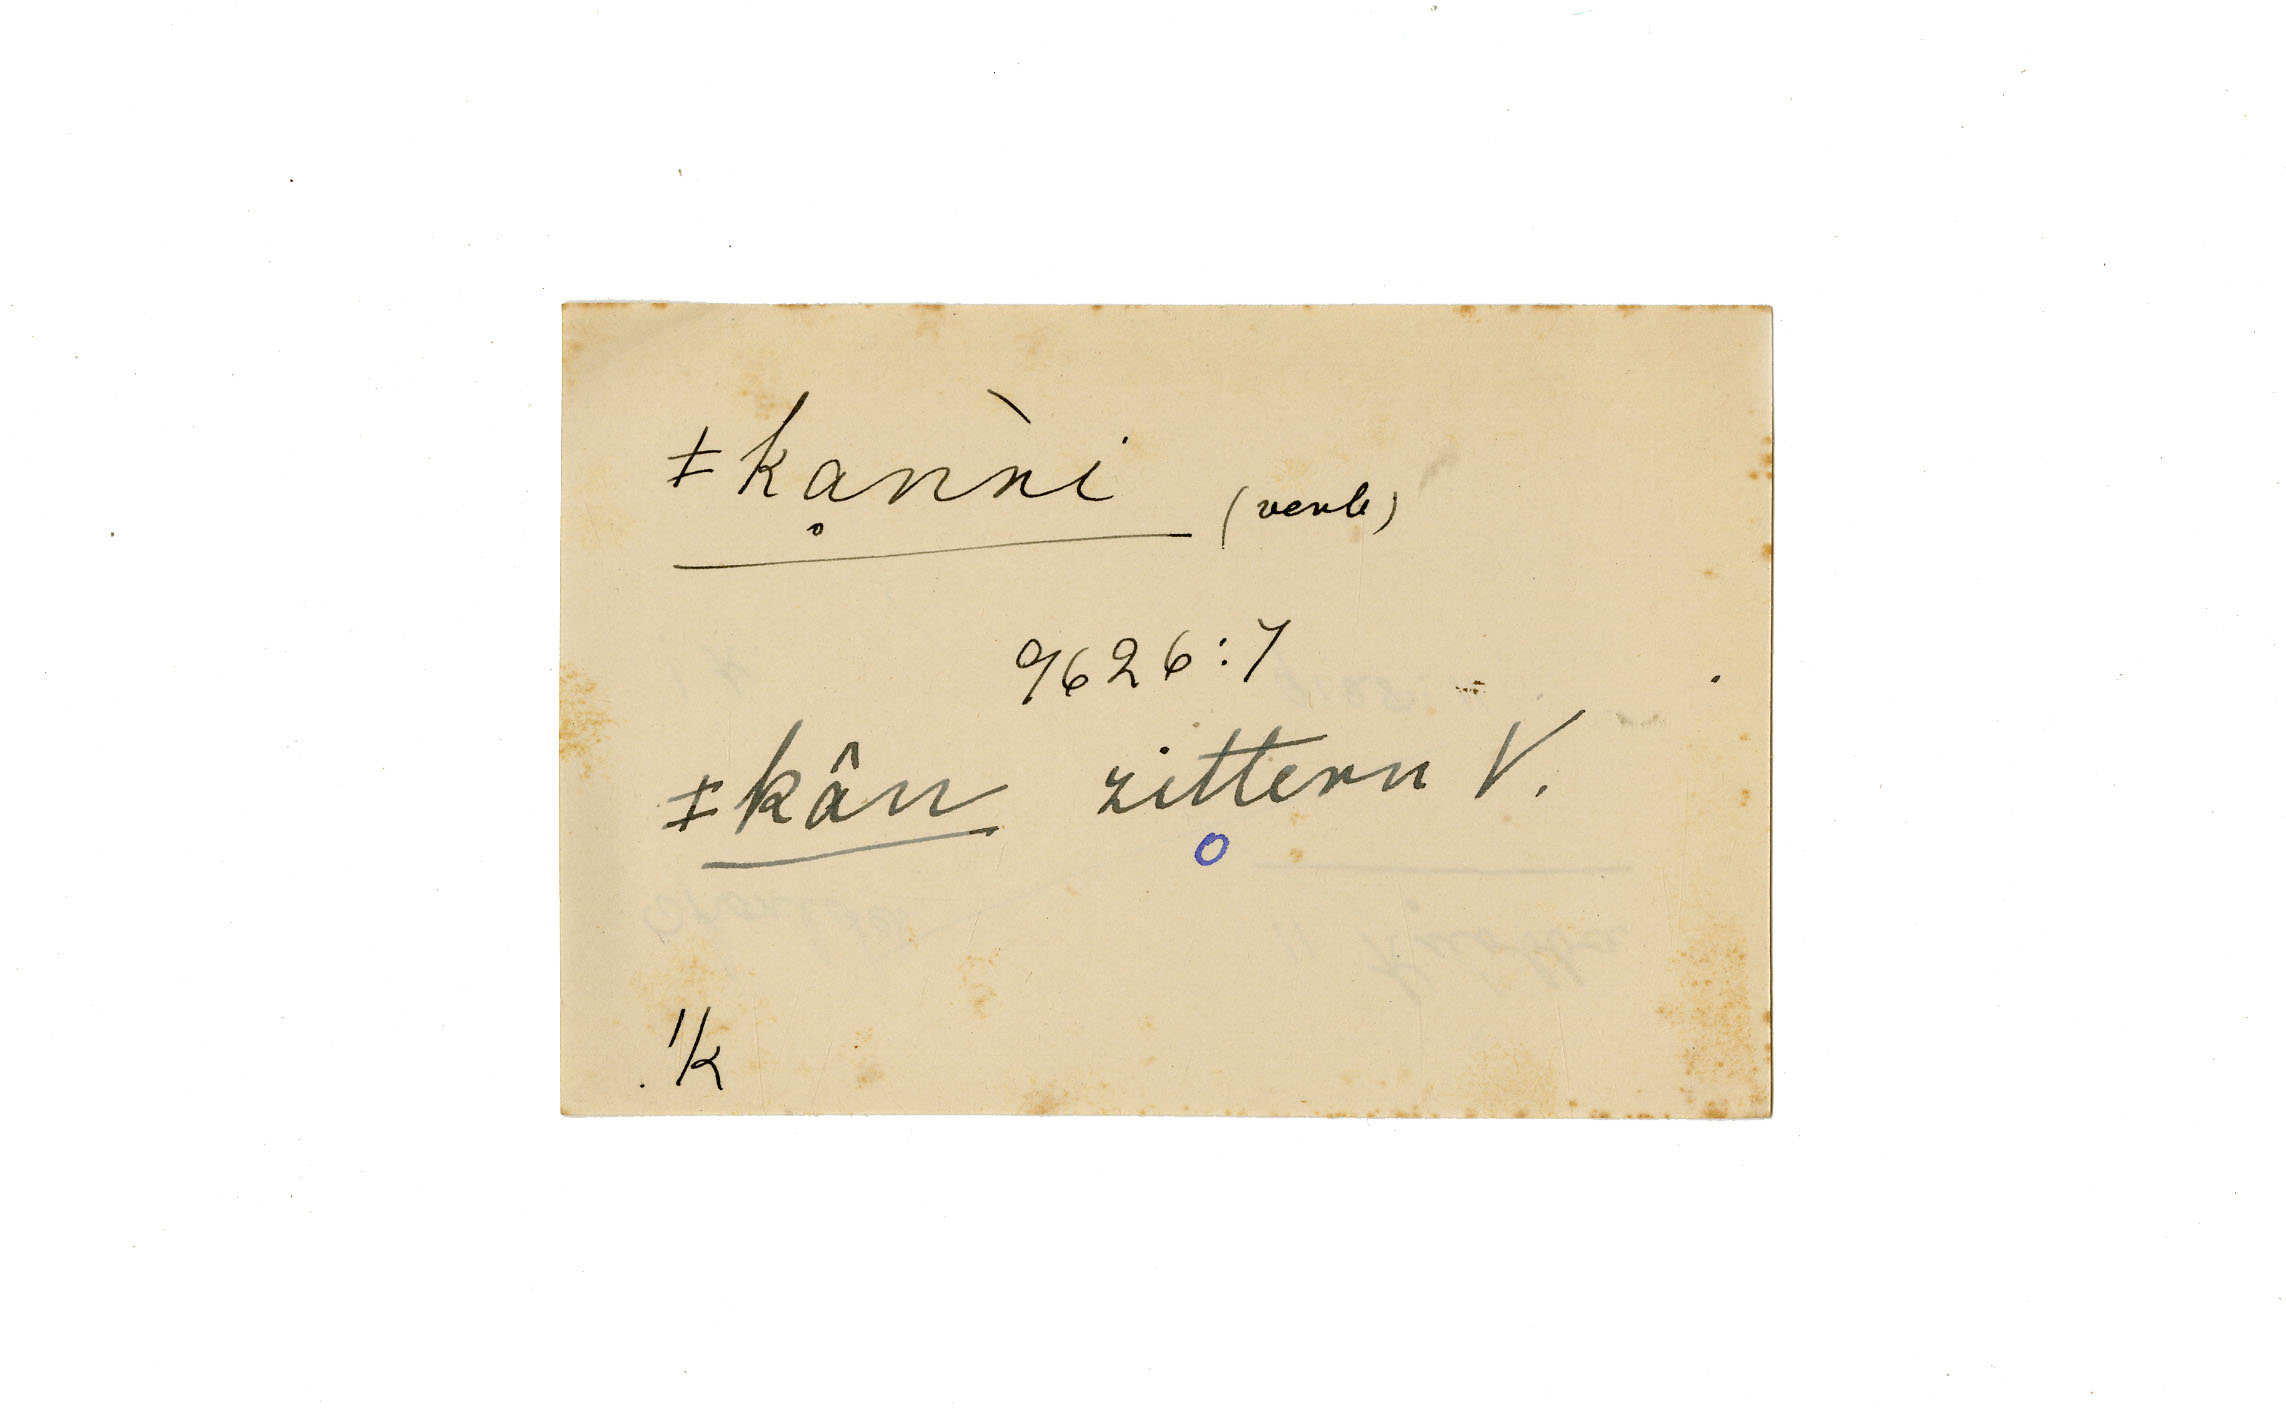 ǂkḁnǹi (verb)
9626:7
ǂkân zittern V.
o
!k